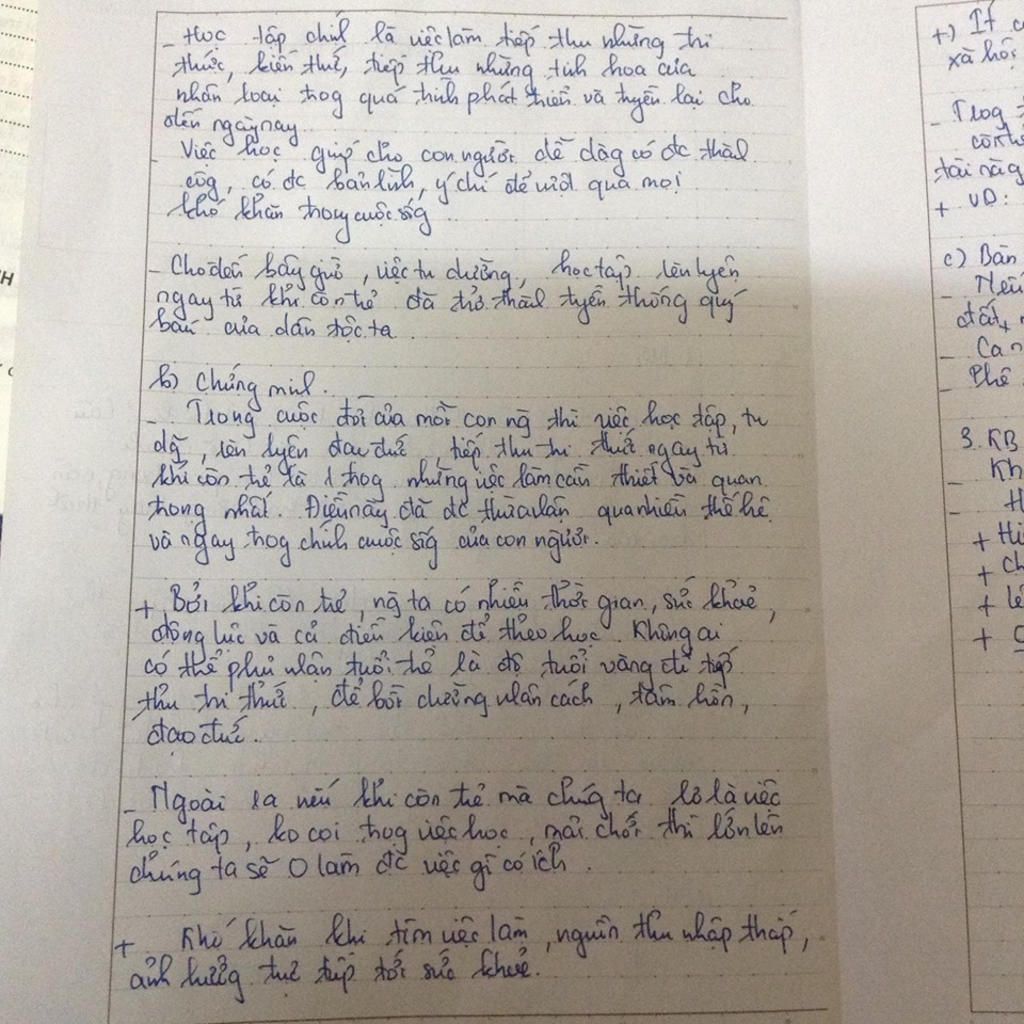 - Học tập chính là việc làm tiếp thu những tri
thức, kiến thức, tiếp thu những tinh hoa của
nhân loại trog quá trình phát triển và truyền lại cho
đến ngày nay.
- Việc học giúp cho con người dễ dàg có đc thàh
côg, có đc bản lĩnh, ý chí để vượt qua mọi
khó khăn trong cuộc sốg
- Cho đến bây giờ, việc tu dưỡng, học tập, rèn luyện
ngay từ khi còn trẻ đã trở thàh truyền thống quý
báu của dân tộc ta.
b) Chứng minh.
- Trong cuộc đời của mỗi con ng thì việc học tập, tu
dg, rèn luyện đạo đức, tiếp thu tri thức ngay từ
khi còn trẻ là 1 trog những việc làm cần thiết và quan
trọng nhất. Điều này đã đc thừa nhận qua nhiều thế hệ
và ngay trog chính cuộc sốg của con người.
+ Bởi khi còn trẻ, ng ta có nhiều thời gian, sức khoẻ,
động lực và cả điều kiện để theo học. Không ai
có thể phủ nhận tuổi trẻ là độ tuổi vàng để tiếp
thu tri thức, để bồi dưỡng nhân cách, tâm hồn,
đạo đức.
- Ngoài ra nếu khi còn trẻ mà chúg ta lơ là việc
học tập, ko coi trọg việc học, mải chơi thì lớn lên
chúng ta sẽ 0 làm đc việc gì có ích.
+ Khó khăn khi tìm việc làm, nguồn thu nhập thấp,
ảnh hưởng trực tiếp tới sức khoẻ.
+) Ít
xã hội
- Trog
tài năg
+ VD:
c) Bàn
- Nếu
đất
-
- Phê
3. KB
- Kh
- H
+ Hi
+ Ch
+
+